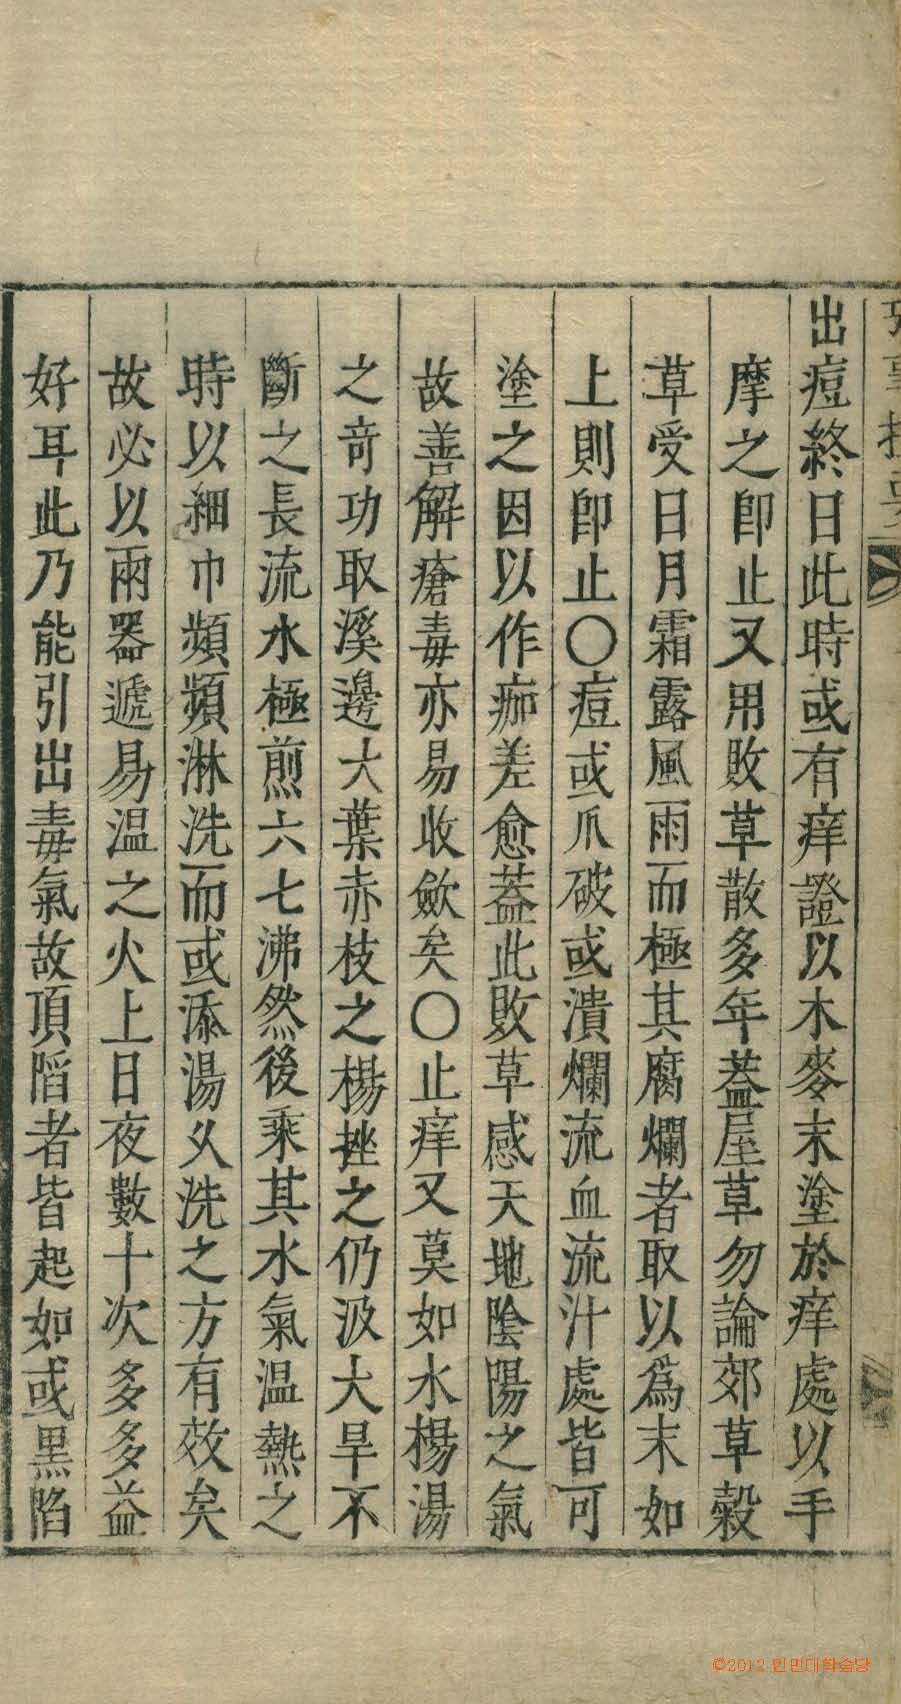 出痘終日此時或有痒證以木麥末塗於痒處以手
摩之卽止又用敗草散多年蓋屋草勿論郊草穀
草受日月霜露風雨而極其腐爛者取以爲末如
上則卽止〇痘或爪破或潰爛流血流汁處皆可
塗之因以作痂差愈蓋此敗草感天地陰陽之氣
故善解瘡毒亦易收斂矣〇止痒又莫如水楊湯
之竒功取溪邊大葉赤枝之楊挫之仍汲大旱不
斷之長流水極煎六七沸然後乘其水氣温熱之
時以細巾頻頻淋洗而或添湯久洗之方有效矣
故必以兩器遞易温之火上日夜數十次多多益
好耳此乃能引出毒氣故頂陷者皆起如或黑陷
©2012 인민대학습당